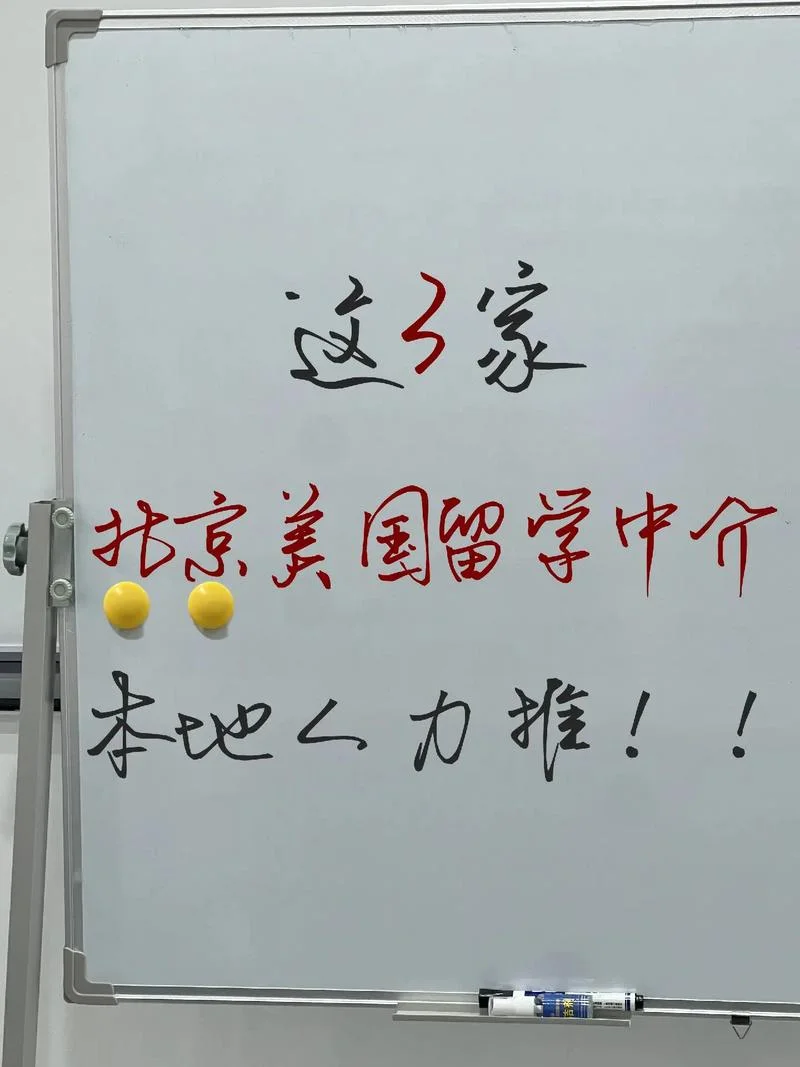 这3家
北京美国留学中介
本地人力推！！